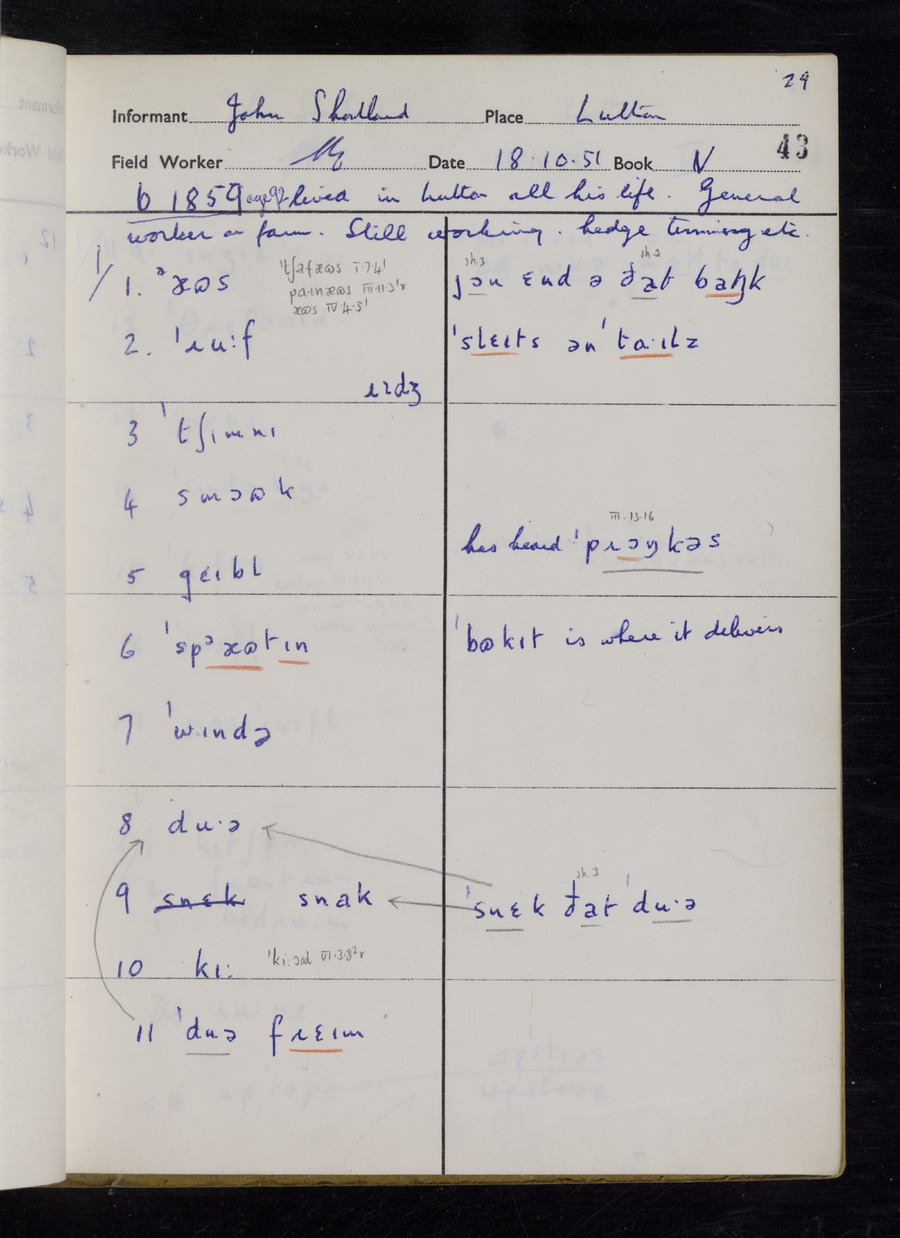 29
Informant John Shortland Place Lutton
Field Worker Date 18.10.51 Book V
43
b 1859 age 92 lived in Lutton all his life. General
worker on farm. Still working. hedge trimming etc.
1/
1. ᵊæɷs
'tʃafæɷs I.7.4'
III.11.3'r
æɷs IV.4.5'
sh.3 sh.3
jɔu ɛnd ə ðat baŋk
2. 'ɹu:f
'slɛɪts ən 'ta·ɪlz
ɹɪdʒ
3 'tʃɪmnɪ
4 smɔɷk
III.13.16
has heard 'pɹɔŋkəs
5 gɛɪbl
6 'spᵊæɷtɪn
'bɷkɪt is where it delivers
7 'wɪndə
8 du·ə
9 snɛk snak
sh.3
'snɛk ðat 'du·ə
10 kɪ:
'ki:əal VI.3.8²r
11 'duə fɹɛɪm